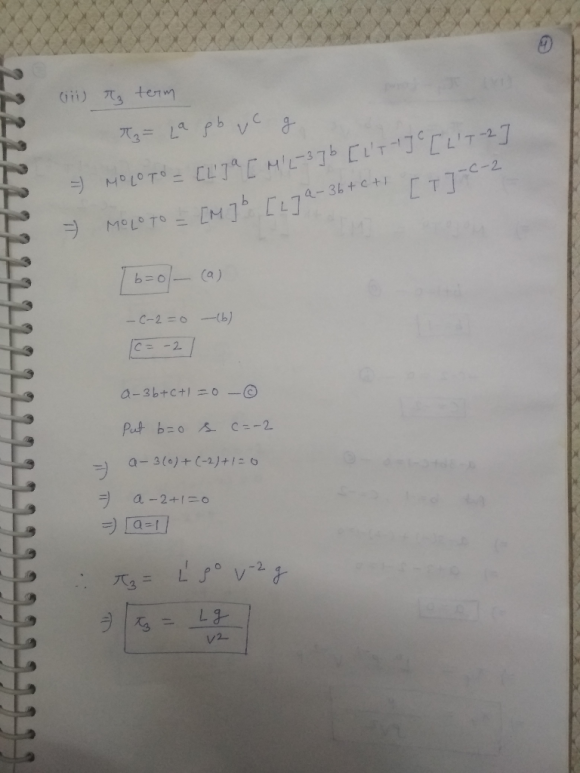 4
(iii) π₃ term
π₃ = Lᵃ ρᵇ Vᶜ g
⇒) M⁰L⁰T⁰ = [L¹]ᵃ [M¹L⁻³]ᵇ [L¹T⁻¹]ᶜ [L¹T⁻²]
⇒) M⁰L⁰T⁰ = [M]ᵇ [L]ᵃ⁻³ᵇ⁺ᶜ⁺¹ [T]⁻ᶜ⁻²
b=0 — (a)
-c-2=0 —(b)
c= -2
a-3b+c+1=0 —ⓒ
Put b=0 & c=-2
⇒) a-3(0)+(-2)+1=0
⇒) a-2+1=0
⇒) a=1
∴ π₃ = L¹ ρ⁰ V⁻² g
⇒) π₃ = Lg/V²